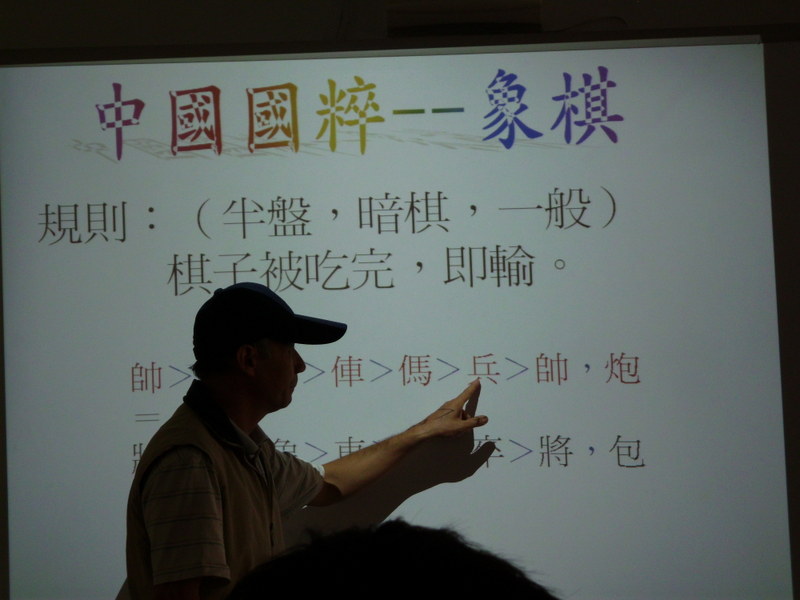 中國國粹--象棋
規則：（半盤，暗棋，一般）
棋子被吃完，即輸。
帥> >俥>傌>兵>帥，炮
=
將 象>車> 卒>將，包